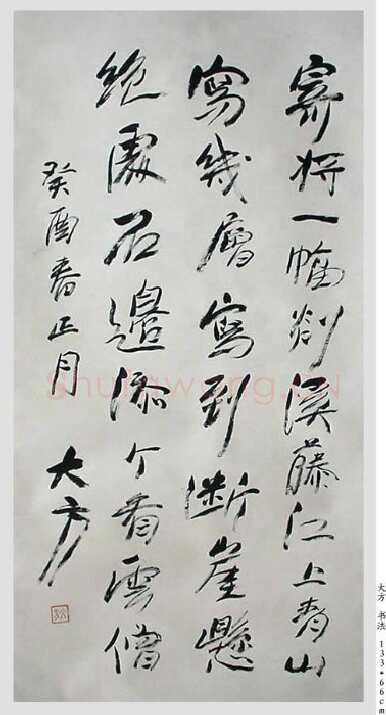 寄将一幅剡溪藤江上青山
寫幾層寫到断崖懸
絶處石邊添个看雲僧
癸酉春正月
大方
大方 书法 133*66cm